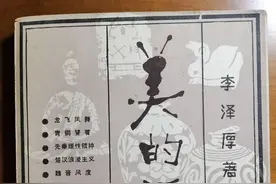 龙飞凤舞
青铜饕餮
先秦理性精神
楚汉浪漫主义
魏晋风度
美的
李泽厚著